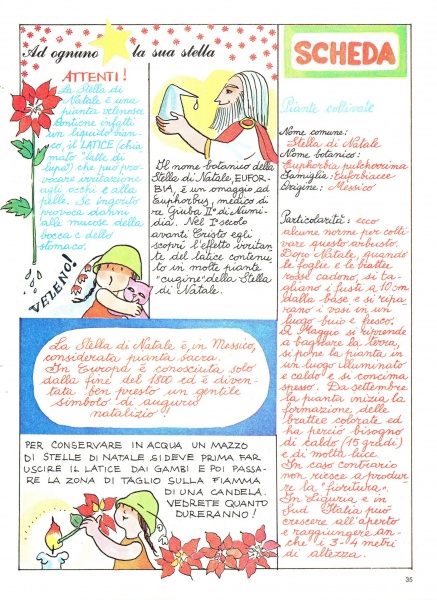 Ad ognuno la sua stella
ATTENTI!
La Stella di
Natale è una
pianta velenosa
contiene infatti
un liquido bian-
co, il LATICE (chia
mato "latte di
lupa) che può pro-
vocare irritazioni
agli occhi e alla
pelle. Se ingerito
provoca danni
alle mucose della
bocca e dello
stomaco.
VELENO!
Il nome botanico della
Stella di Natale, EUFOR-
BIA, è un omaggio ad
Euphorbus, medico di
re Giuba II° di Numi-
dia. Nel I° secolo
avanti Cristo egli
scoprì l'effetto irritan
te del latice contenu
to in molte piante
"cugine" della Stella
di Natale.
La Stella di Natale è, in Messico,
considerata pianta sacra.
In Europa è conosciuta solo
dalla fine del 1800 ed è diven-
tata ben presto un gentile
simbolo di augurio
natalizio!
PER CONSERVARE IN ACQUA UN MAZZO
DI STELLE DI NATALE SI DEVE PRIMA FAR
USCIRE IL LATICE DAI GAMBI E POI PASSA-
RE LA ZONA DI TAGLIO SULLA FIAMMA
DI UNA CANDELA.
VEDRETE QUANTO
DURERANNO!
SCHEDA
Piante coltivate
Nome comune:
Stella di Natale
Nome botanico:
Euphorbia pulcherrima
Famiglia: Euforbiacee
Origine: Messico
Particolarità: ecco
alcune norme per colti
vare questo arbusto.
Dopo Natale, quando
le foglie e le brattee
rosse cadono, si ta-
gliano i fusti a 10 cm
dalla base e si ripa-
rano i vasi in un
luogo buio e fresco.
A Maggio si riprende
a bagnare la terra,
si pone la pianta in
un luogo illuminato
e caldo e si concima
spesso. Da settembre
la pianta inizia la
formazione delle
brattee colorate ed
ha perciò bisogno
di caldo (15 gradi)
e di molta luce.
In caso contrario
non riesce a produr
re la "fioritura".
In Liguria e in
Sud Italia può
crescere all'aperto
e raggiungere an-
che i 3-4 metri
di altezza.
35